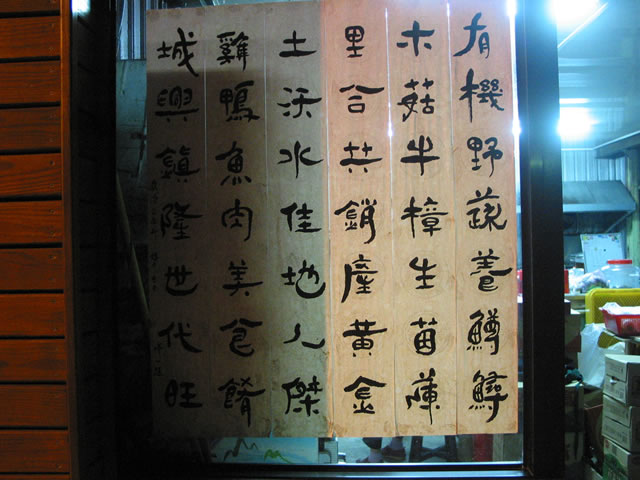 有機野蔬養鱒鱘
木菇牛樟生茵蔯
里合共銷產黃金
土沃水佳地人傑
雞鴨魚肉美食餚
城興鎮隆世代旺